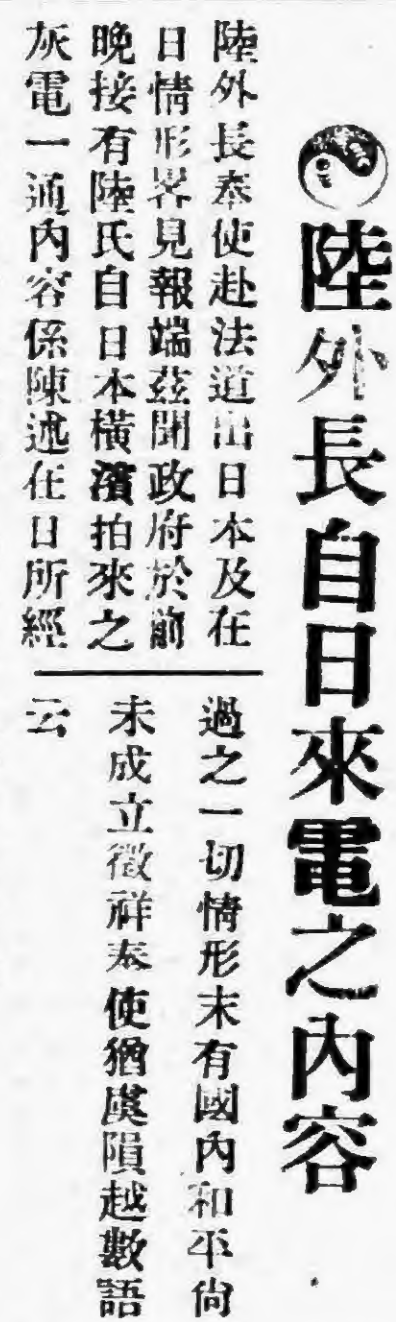 陸外長自日來電之內容
陸外長奉使赴法道出日本及在
日情形畧見報端茲聞政府於前
晚接有陸氏自日本橫濱拍來之
灰電一通內容係陳述在日所經
過之一切情形末有國內和平尙
未成立徵祥奉使猶虞隕越數語
云